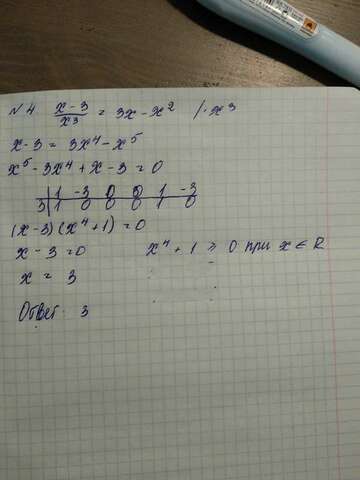 №4 (x-3)/x³ = 3x-x² /·x³
x-3 = 3x⁴-x⁵
x⁵-3x⁴+x-3=0
1 -3 0 0 1 -3
3 1 0 0 0 1 0
(x-3)(x⁴+1)=0
x-3=0 x⁴+1 > 0 при x∈R
x = 3
Ответ: 3